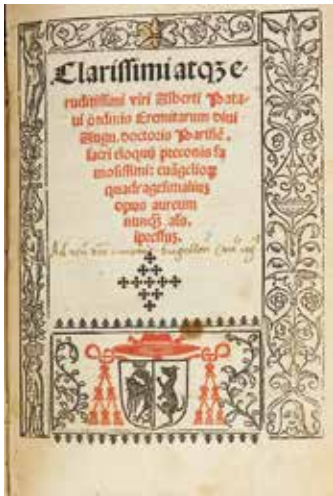 Clarissimi atqꝫ e-
ruditissimi viri Alberti Pata-
ui ordinis Eremitarum diui
Augu. doctoris Parisiē.
sacri eloquij preconis fa
mosissimi: euāgelioꝝ
quadragesimaliuꝫ
opus aureum
nunqꝫ als.
ipressuꝫ.
Ad